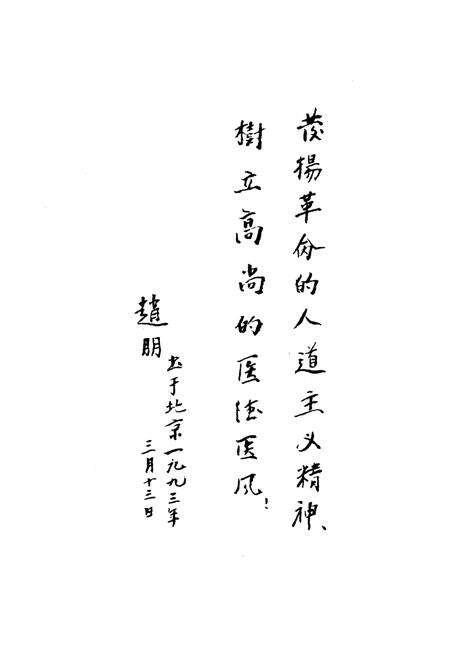 发揚革命的人道主义精神、
樹立高尚的医德医风！
趙明
书于北京一九九三年
三月十三日